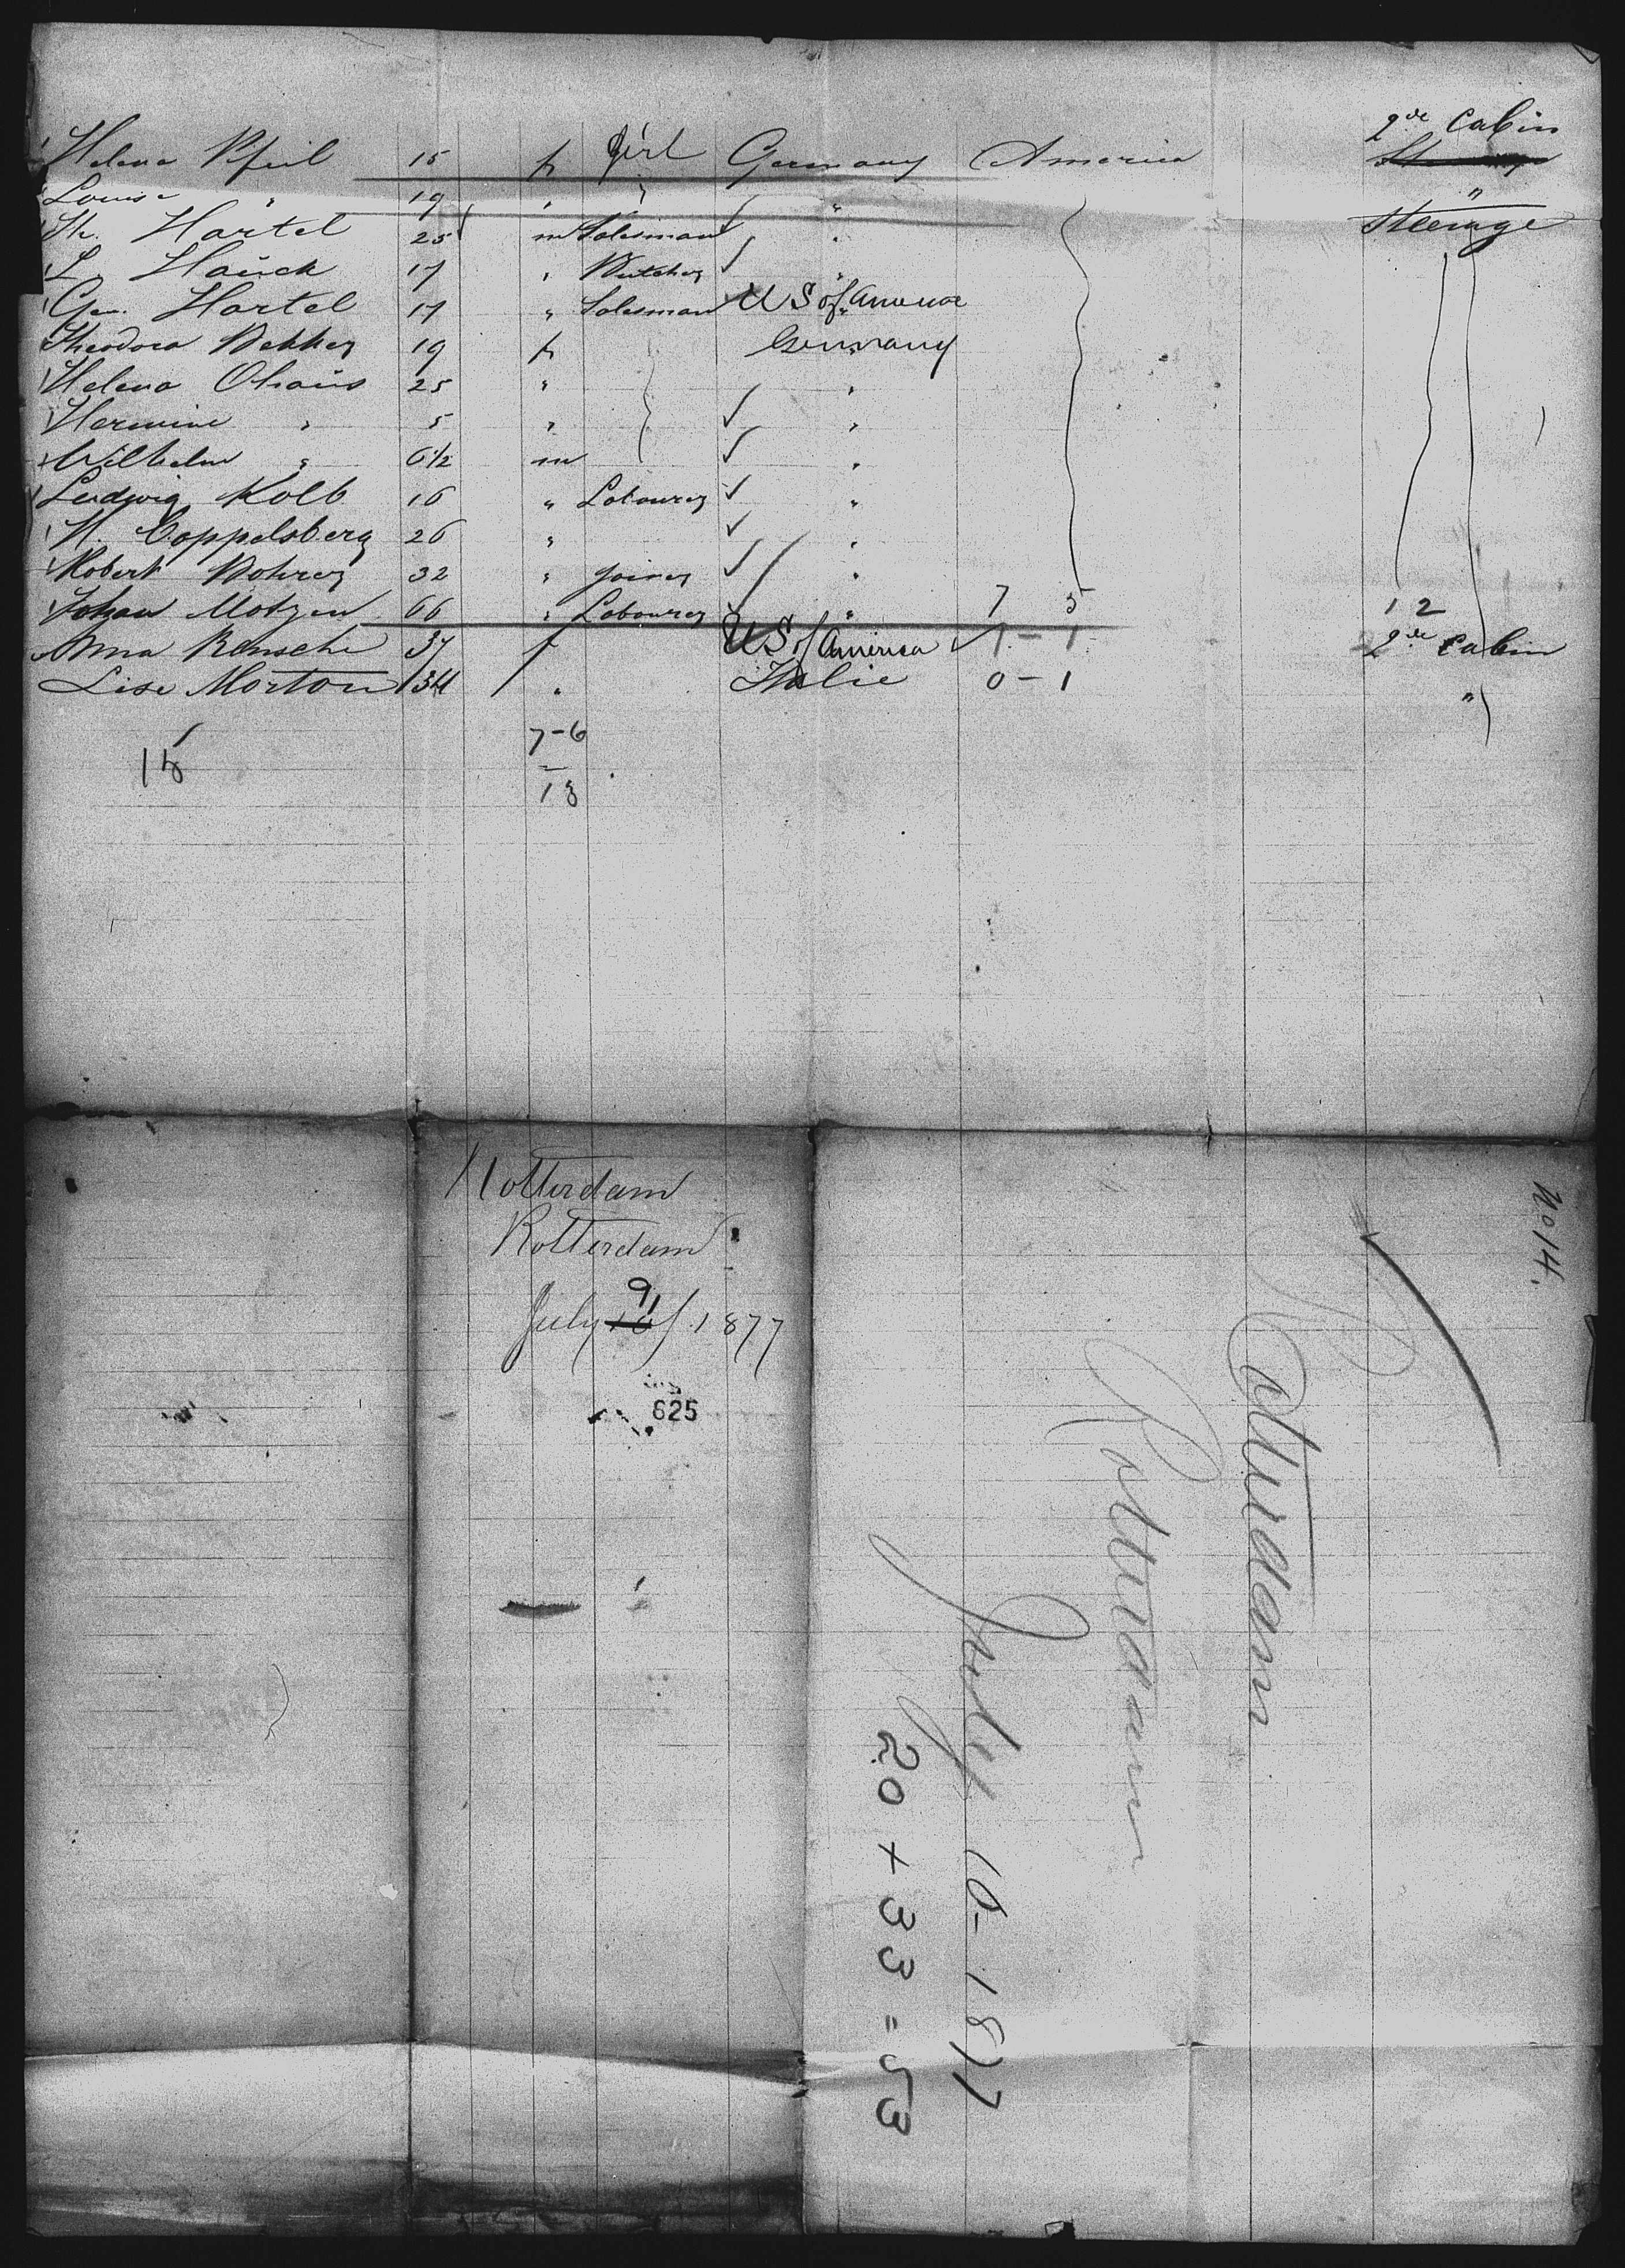 2de Cabin
Helena Pfeil 15 f Girl Germany America
Louise " 19 " " "
Hr. Hartel 25 m Salesman " Steerage
L. Hauck 17 " Butcher "
Geo. Hartel 17 " Salesman U S of America
Theodora Bekker 19 f Germany
Helena Ohaus 25 " "
Hermine " 5 " "
Wilhelm " 6 1/2 m "
Ludwig Kolb 16 " Labourer "
H. Coppelsberg 26 " "
Robert Rohrer 32 " Joiner "
Johan Motzen 66 " Labourer " 7 5 12
Anna Rensche 37 f U S of America 1 - 1 2de Cabin
Lise Morton 34 " Italie 0 - 1 "
7-6
15
13
Rotterdam
Rotterdam
July 16 9/ 1877
625
No 14.
Rotterdam
Rotterdam
July 10 - 1877
20 + 33 = 53